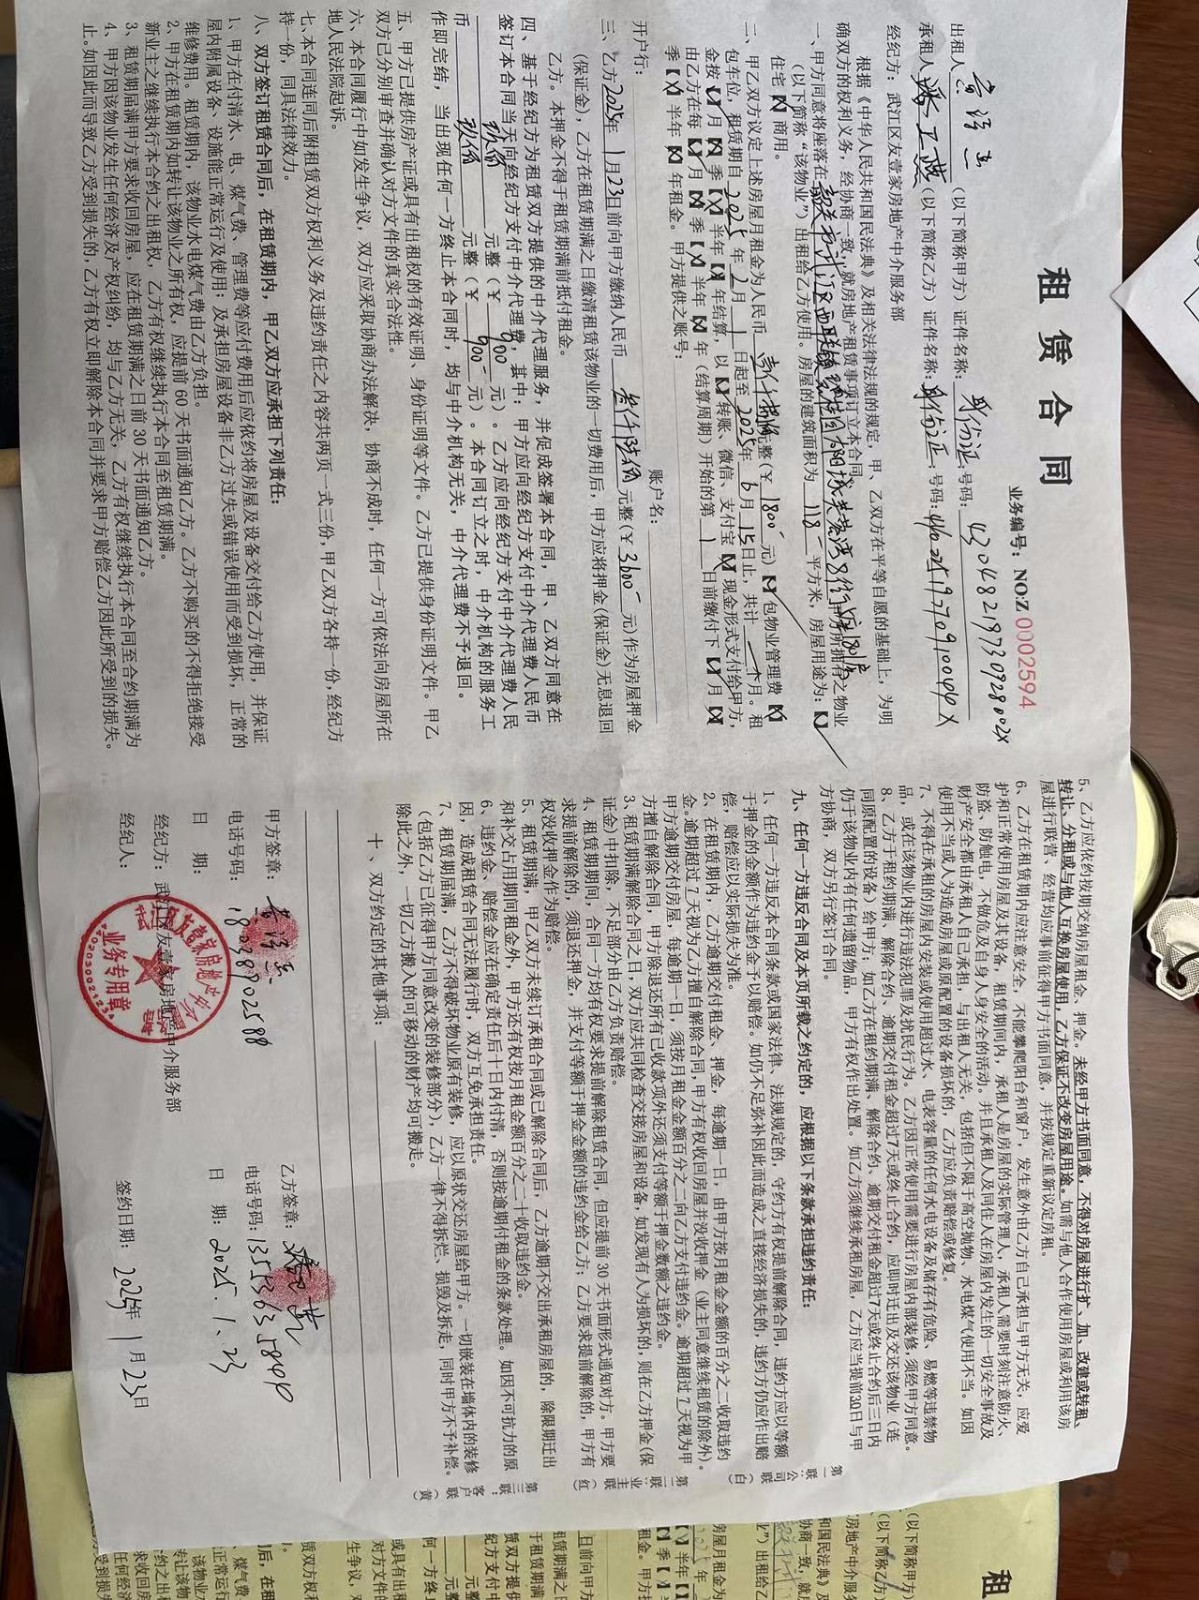 租赁合同
业务编号：NO:Z 0002594
出租人 （以下简称甲方）证件名称：身份证 号码：
承租人 （以下简称乙方）证件名称：身份证 号码：
经纪方：武江区友壹家房地产中介服务部
根据《中华人民共和国民法典》及相关法律法规的规定，甲、乙双方在平等自愿的基础上，为明
确双方的权利义务，经协商一致，就房地产租赁事项订立本合同。
一、甲方同意将座落在 甲方所拥有之物业
（以下简称“该物业”）出租给乙方使用。房屋的建筑面积为 118 平方米，房屋用途为：【】
住宅【】商用。
二、甲乙双方议定上述房屋月租金为人民币 元整（￥1800元）【】包物业管理费【】
包车位，租赁期自 2025 年 2 月 1 日起至 2025年 6 月 15日止，共计 个月。租
金按【】月【】季【】半年【】年结算，以【】转账、微信、支付宝【】现金形式支付给甲方，
由乙方在每【】月【】季【】半年【】年（结算周期）开始的第 1 日前缴付下【】月【】
季【】半年【】年租金。甲方提供之账号：
开户行： 账户名：
三、乙方2025年1月23日前向甲方缴纳人民币 叁仟陆佰 元整（￥3600元）作为房屋押金
（保证金），乙方在租赁期满之日缴清租赁该物业的一切费用后，甲方应将押金（保证金）无息退回
乙方。本押金不得于租赁期满前抵付租金。
四、基于经纪方为租赁双方提供的中介代理服务，并促成签署本合同，甲、乙双方同意在
签订本合同当天向经纪方支付中介代理费，其中：甲方应向经纪方支付中介代理费人民币
玖佰 元整（￥ 900 元）。乙方应向经纪方支付中介代理费人民
币 玖佰 元整（￥ 900 元）。本合同订立之时，中介机构的服务工
作即完结，当出现任何一方终止本合同时，均与中介机构无关，中介代理费不予退回。
五、甲方已提供房产证或具有出租权的有效证明、身份证明等文件。乙方已提供身份证明文件。甲乙
双方已分别审查并确认对方文件的真实合法性。
六、本合同履行中如发生争议，双方应采取协商办法解决，协商不成时，任何一方可依法向房屋所在
地人民法院起诉。
七、本合同连同后附租赁双方权利义务及违约责任之内容共两页一式三份，甲乙双方各持一份，经纪方
持一份，同具法律效力。
八、双方签订租赁合同后，在租赁期内，甲乙双方应承担下列责任：
1、甲方在付清水、电、煤气费、管理费等应付费用后应依约将房屋及设备交付给乙方使用，并保证
屋内附属设备、设施能正常运行及使用；及承担房屋设备非乙方过失或错误使用而受到损坏，正常的
维修费用。租赁期内，该物业水电煤气费由乙方负担。
2、甲方在租赁期内如转让该物业之所有权，应提前 60 天书面通知乙方。乙方不购买的不得拒绝接受
新业主之继续执行本合约之出租权，乙方有权继续执行本合同至租赁期满。
3、租赁期届满甲方要求收回房屋，应在租赁期满之日前 30 天书面通知乙方。
4、甲方因该物业发生任何经济及产权纠纷，均与乙方无关，乙方有权继续执行本合同至合约期满为
止。如因此而导致乙方受到损失的，乙方有权立即解除本合同并要求甲方赔偿乙方因此所受到的损失。
5、乙方应依约按期交纳房屋租金、押金。未经甲方书面同意，不得对房屋进行扩、加、改建或转租、
转让、分租或与他人互换房屋使用，乙方保证不改变房屋用途。如需与他人合作使用房屋或利用该房
屋进行联营、经营均应事前征得甲方书面同意，并按规定重新议定房租。
6、乙方在租赁期内应注意安全，不能攀爬阳台和窗户，发生意外由乙方自己承担与甲方无关，应爱
护和正常使用房屋及其设备，租赁期间内，承租人是房屋的实际管理人，承租人需要时刻注意防火、
防盗、防触电，不做危及自身人身安全的活动。并且承租人及同住人在房屋内发生的一切安全事故及
财产安全都由承租人自己承担，与出租人无关，包括但不限于高空抛物、水电煤气使用不当。如因
使用不当或人为造成房屋或原配置的设备损坏的，乙方应负责赔偿或修复。
7、不得在承租的房屋内安装或使用超过水、电表容量的任何水电设备及储存有危险、易燃等违禁物
品，或在该物业内进行违法犯罪及扰民行为。乙方因正常使用需要进行房屋内部装修，须经甲方同意。
8、乙方于租约期满、解除合约，逾期交付租金超过7天或终止合约，应即时迁出及交还该物业（连
同原配置的设备）给甲方；如乙方在租约期满、解除合约、逾期交付租金超过7天或终止合约后三日内
仍于该物业内有任何遗留物品，甲方有权作出处置。如乙方须继续承租房屋，乙方应当提前30日与甲
方协商，双方另行签订合同。
九、任何一方违反合同及本页所载之约定的，应根据以下条款承担违约责任：
1、任何一方违反本合同条款或国家法律、法规规定的，守约方有权提前解除合同，违约方应以等额
于押金的金额作为违约金予以赔偿。如仍不足弥补因此而造成之直接经济损失的，违约方仍应作出赔
偿，赔偿应以实际损失为准。
2、在租赁期内，乙方逾期交付租金、押金，每逾期一日，由甲方按月租金金额的百分之二收取违约
金。逾期超过７天视为乙方擅自解除合同，甲方有权收回房屋并没收押金（业主同意继续租赁的除外）。
甲方逾期交付房屋，每逾期一日，须按月租金金额百分之二向乙方支付违约金。逾期超过７天视为甲
方擅自解除合同，甲方除退还所有已收款项外还须支付等额于押金数额之违约金。
3、租赁期满解除合同之日，双方应共同检查交接房屋和设备，如发现有人为损坏的，则在乙方押金（保
证金）中扣除，不足部分由乙方负责赔偿。
4、租赁期期间，合同一方均有权要求提前解除租赁合同，但应提前 30 天书面形式通知对方。甲方要
求提前解除的，须退还押金，并支付等额于押金金额的违约金给乙方；乙方要求提前解除的，甲方有
权没收押金作为赔偿。
5、租赁期满，甲乙双方未续订承租合同或已解除合同后，乙方逾期不交出承租房屋的，除限期迁出
和补交占用期间租金外，甲方还有权按月租金额百分之二十收取违约金。
6、违约金、赔偿金应在确定责任后十日内付清，否则按逾期付租金的条款处理。如因不可抗力的原
因，造成租赁合同无法履行时，双方互免承担责任。
7、租赁期届满，乙方不得破坏物业原有装修，应以原状交还房屋给甲方。一切嵌装在墙体内的装修
（包括乙方已征得甲方同意改变的装修部分），乙方一律不得拆烂、损毁及拆走，同时甲方不予补偿。
除此之外，一切乙方搬入的可移动的财产均可搬走。
十、双方约定的其他事项：
甲方签章： 乙方签章：
电话号码：18038902588 电话号码：
日 期： 日 期：2025.1.23
经纪方：武江区友壹家房地产中介服务部
经纪人： 签约日期：2025年 1 月 23日
业务专用章
第一联：公司联（白）
第二联：业主联（红）
第三联：客户联（黄）